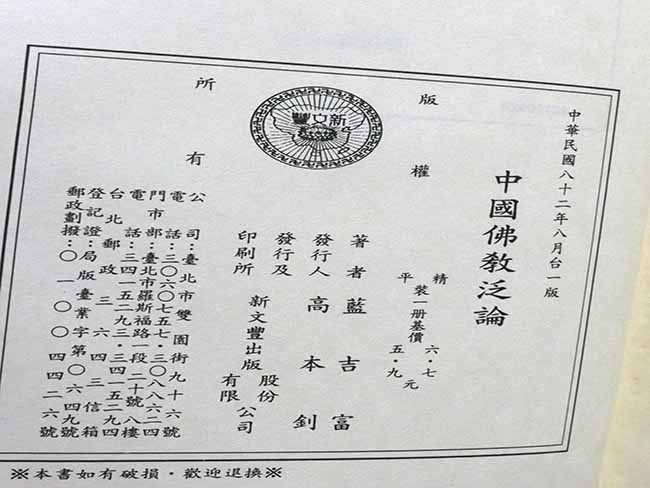 中華民國八十二年八月台一版
中國佛教泛論
版權所有
新文豐
精
平
裝一册基價
六・七
五・九
元
著者藍吉富
發行人高本釗
發行及
印刷所
新文豐出版
股份
有限
公司
公司：臺北市雙園街九十六號
電話：三〇六〇七五七・三〇八八六二四
門市部：臺北市羅斯福路一段二十號八樓
電話：三四一五二九三・三四一五二九四
台北郵政三六四三信箱
登記證：局版臺業字第〇六四九號
郵政劃撥：〇一〇〇四四二六號
※本書如有破損・歡迎退換※